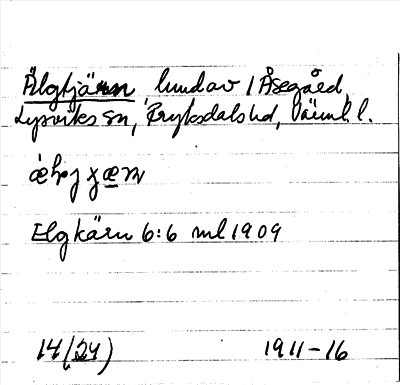 Älgtjärn, lund av 1 Åsegård,
Lysviks sn, Fryksdals hd, Värml. l.
Elgkärn 6:6 ml 1909
14 (24) 1911-16